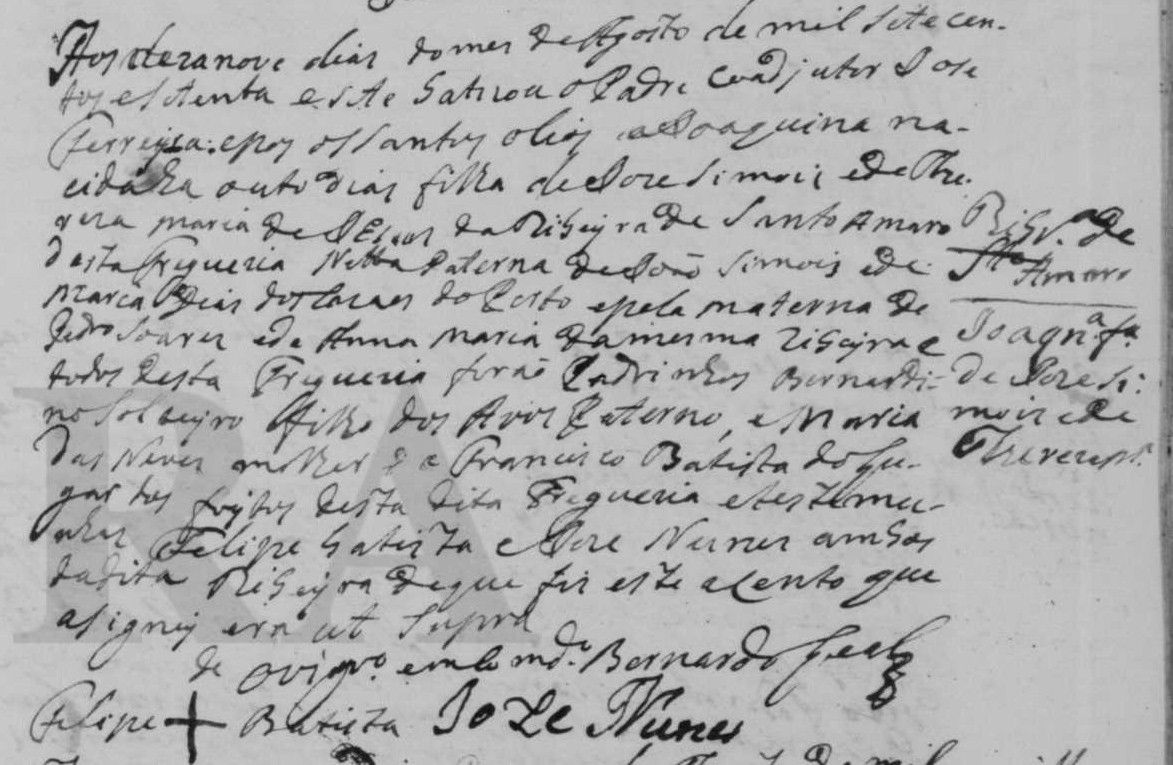 Aos dezanove dias do mes de Agosto de mil setecen-
tos e setenta e sete batizou o Padre Coadjutor Jose
Ferreyra. e pos os Santos olios a Joaquina na-
cida ha outo dias filha de Jose Simois e de The-
reza maria de Jesus da Ribeyra de Santo Amaro
desta Freguezia Netta Paterna de João Simois e de
Maria Dias dos do Porto e pela materna de
Pedro Soares e de Anna Maria da mesma Ribeyra e
todos desta Freguezia forão Padrinhos Bernardi-
no Solteyro filho dos Avos Paterno, e Maria
das Neves molher de Francisco Batista do Lu-
gar dos desta dita Freguezia e testemu-
nhas Felipe Batista e Jose Nunes ambos
da dita Ribeyra de que fis este acento que
asigney era ut supra
de Bernardo Leal
Felipe + Batista Joze Nunes
Ribrª de
Stº Amaro
Joaqnª fª
de Jose Si-
mois e de
Thereza
RA